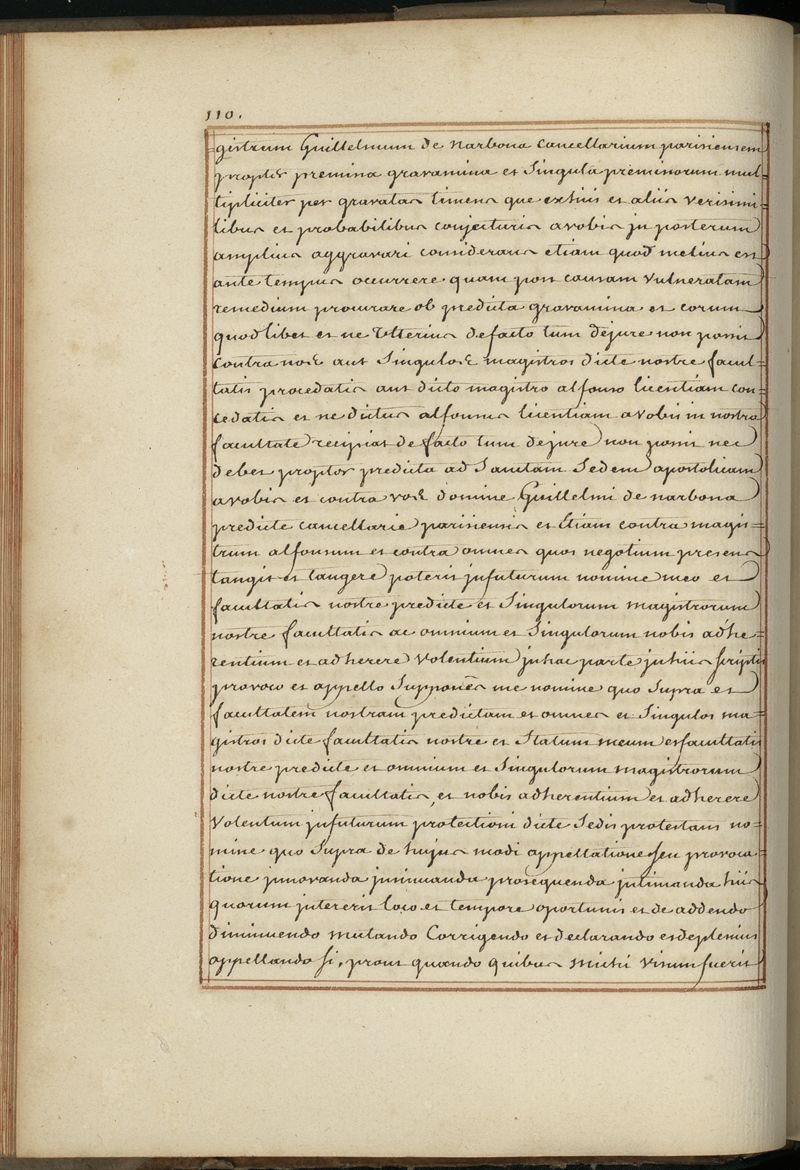 110.
gistrum Guillelmum de Narbona Cancellarium parisiensem
propter premina gravamina et Singula preminorum mul-
tipliciter per gravatas timens que ex hiis et aliis verisimi-
libus et probabilibus conjecturis a vobis in posterum
amplius aggravari considerans etiam quod melius est
ante tempus occurrere quam post causam vulneratam
remedium procurare ob predicta gravamina et eorum
quodlibet et ne Ulterius de facto tum dejure non possit
contra nos aut Singulos magistros dicte nostre facul-
tatis procedatis aut dicto magistro alfonso licentiam con-
cedatis et ne dictus alfonsus licentiam a vobis in nostra
facultate recipiat de facto tum dejure non possit nec
debet propter predicta ad Sanctam Sedem apostolicam
a vobis et contra vos domine Guillelmi de narbona
predicte cancellarie parisiensis et Etiam contra magis=
trum alfonsum et contra omnes quos negotium presens
tangit et tangere poterit in futurum nomine meo et
facultatis nostre predicte et Singulorum magistrorum
nostre facultatis ac omnium et Singulorum nobis adhe=
rentium et adherere Volentium in hac parte in hiis scriptis
provoco et appello Supponens me nomine quo Supra et
facultatem nostram predictam et omnes et Singulos ma=
gistros dicte facultatis nostre et Statum meum et facultatis
nostre predicte et omnium et Singulorum magistrorum
dicte nostre facultatis, et nobis adherentium et adherere
Volentum in futurum protectioni dicte Sedis protestans no=
mine quo Supra de hujus modi appellatione seu provoca=
tione innovanda insinuanda prosequenda intimanda hiis
quorum intererit loco et tempore oportunis et de addendo
diminuendo mutando Corrigendo et declarando et deplenius
appellando si, prout quando quibus michi visum fuerit